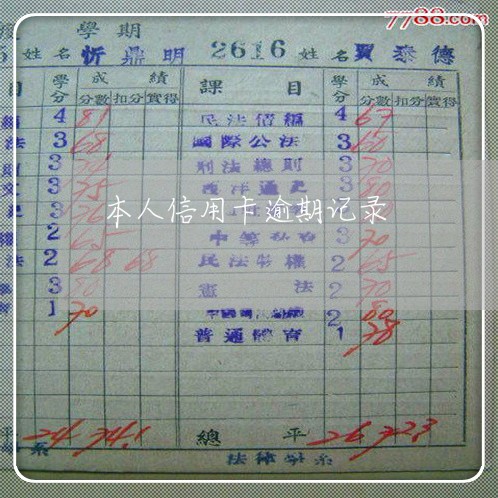 7788.com
學期
姓名 忻鼎明 2616 姓名 賈泰德
目 學分 成績 課目 學分 成績
分數 扣分 實得 分數 扣分 實得
4 81 民法債編 4 67
法 3 68 國際公法 3 60
3 刑法總則 3 70
3 75 西洋通史 3 80
本人信用卡逾期记录
2 65 3 70
法 2 68 68 民法物權 2 65
3 80 憲法 2 70
1 70 2 80
普通體育 1 78
平 24 74.1 總平 26 72.3
系 法律學系